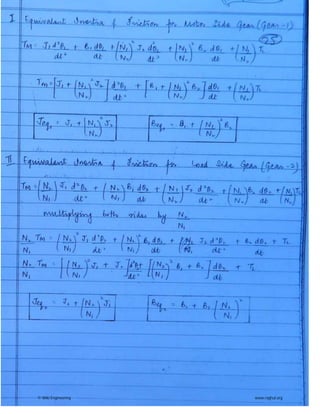 I Equivalent Inertia & Friction for Motor Side Gear (Gear-1)
25
Tm = J₁ d²θ₁/dt² + B₁ dθ₁/dt + (N₁/N₂)² J₂ d²θ₁/dt² + (N₁/N₂)² B₂ dθ₁/dt + (N₁/N₂) TL
Tm = [J₁ + (N₁/N₂)² J₂] d²θ₁/dt² + [B₁ + (N₁/N₂)² B₂] dθ₁/dt + (N₁/N₂) TL
Jeq₁ = J₁ + (N₁/N₂)² J₂ Beq₁ = B₁ + (N₁/N₂)² B₂
II Equivalent Inertia & Friction for Load Side Gear (Gear-2)
Tm = (N₂/N₁) J₁ d²θ₂/dt² + (N₂/N₁) B₁ dθ₂/dt + (N₁/N₂) J₂ d²θ₂/dt² + (N₁/N₂) B₂ dθ₂/dt + (N₁/N₂) TL
multiplying both sides by N₂/N₁
N₂/N₁ Tm = (N₂/N₁)² J₁ d²θ₂/dt² + (N₂/N₁)² B₁ dθ₂/dt + J₂ d²θ₂/dt² + B₂ dθ₂/dt + TL
N₂/N₁ Tm = [(N₂/N₁)² J₁ + J₂] d²θ₂/dt² + [(N₂/N₁)² B₁ + B₂] dθ₂/dt + TL
Jeq₂ = J₂ + (N₂/N₁)² J₁ Beq₂ = B₁ + B₂ (N₂/N₁)²
www.rejinpaul.org